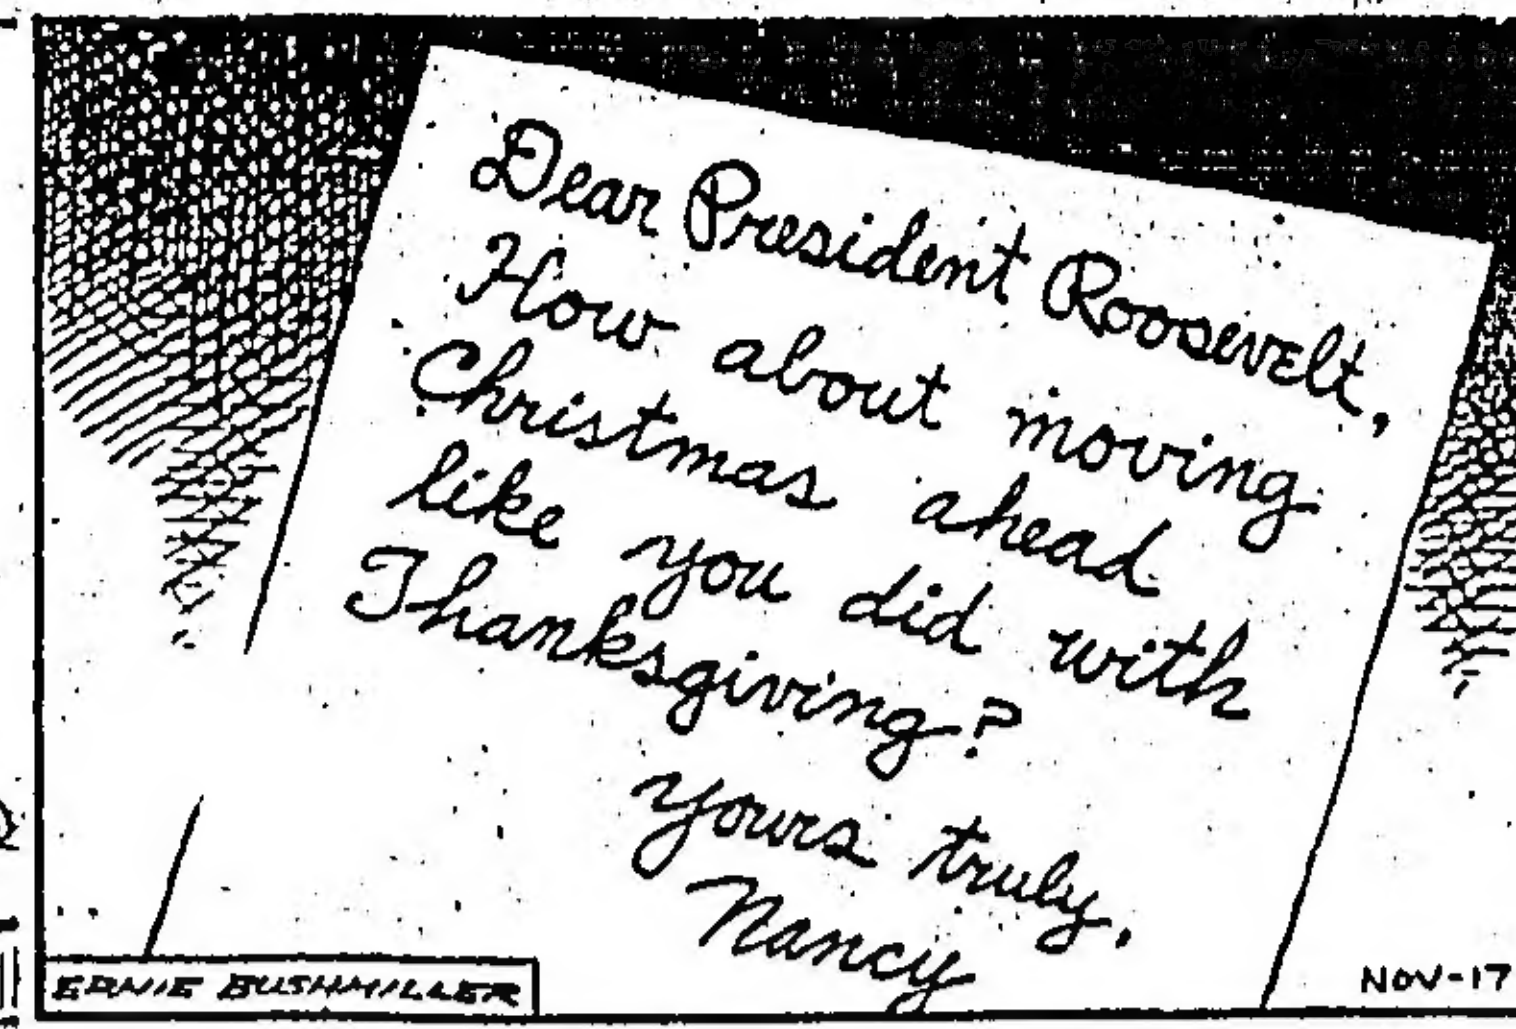 Dear President Roosevelt,
How about moving
Christmas ahead
like you did with
Thanksgiving?
yours truly,
Nancy
ERNIE BUSHMILLER
NOV-17